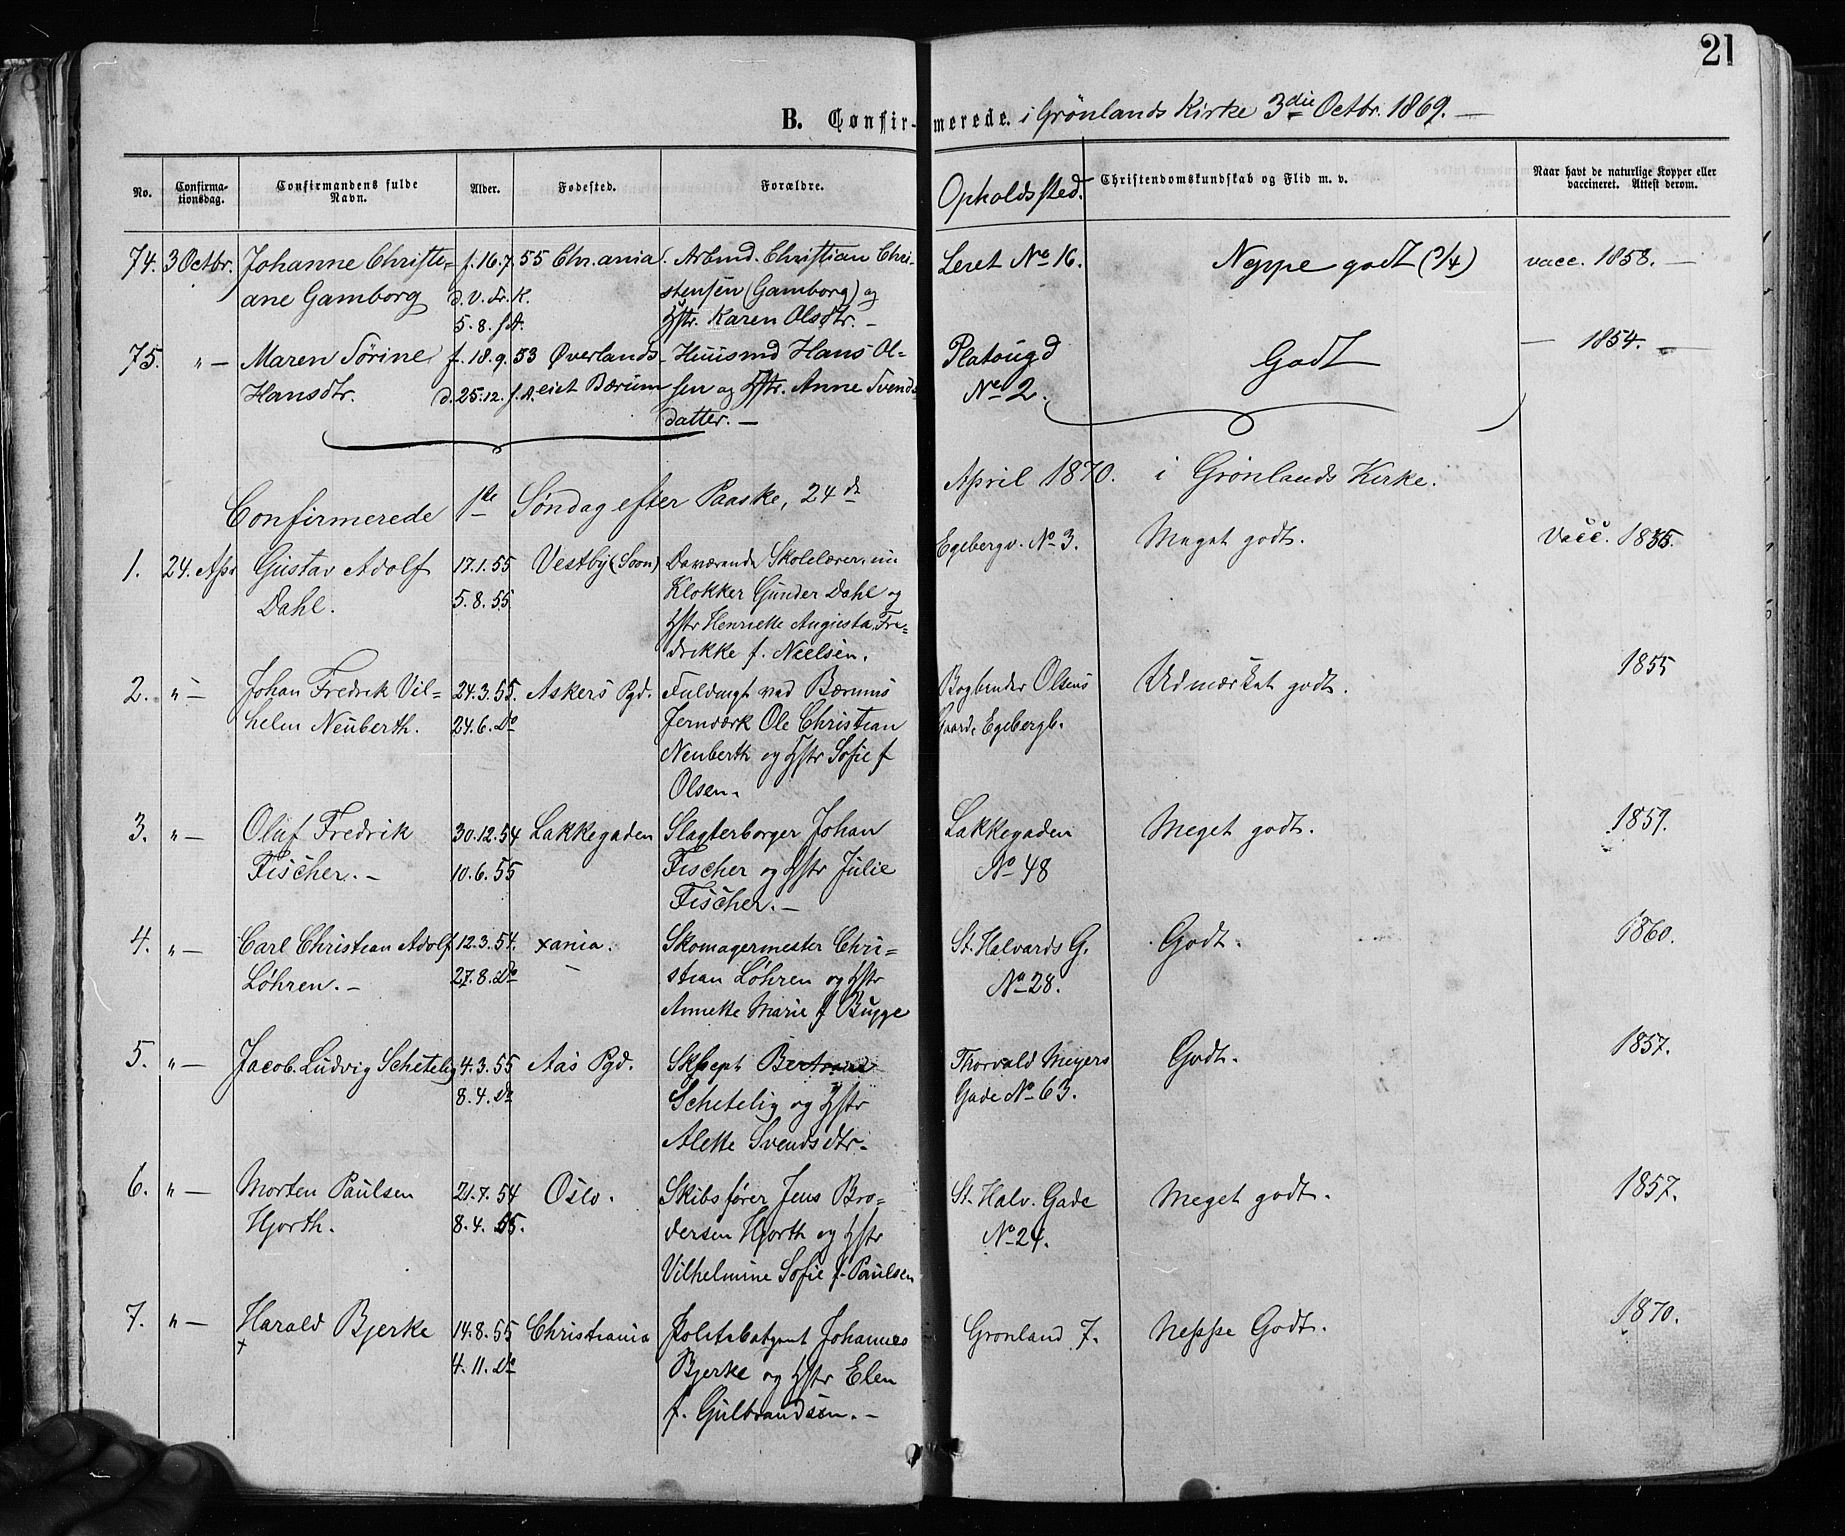 21
B. Confirmerede. i Grönlands Kirke 3die Octbr. 1869. —
No.
Confirma-
tionsdag.
Confirmandens fulde
Navn.
Alder.
Fødested.
Forældre.
Opholdssted.
Christendomskundskab og Flid m. v.
Naar havt de naturlige Kopper eller
vaccineret. Attest derom.
74. 3 Octbr. Johanne Christi= f. 16.7. 55 Chr.ania. Arbmd. Christian Chri- Leret No 16. Neppe godt (3/4) vacc. 1858. —
ane Gamborg d. V. Fr. K. stensen (Gamborg) og
5. 8. s.A. Hstr. Karen Olsdtr. —
75. " — Maren Sørine f. 18.9. 53 Øverlands- Huusmd Hans Ol- Platougd Godt — 1854. —
Hansdtr. d. 25.12. s.A. eiet Bærum sen og Hstr. Anne Svends- No 2.
datter. —
Confirmerede 1ste Søndag efter Paaske, 24de April 1870. i Grönlands Kirke.
1. 24. Apr Gustav Adolf 17.1.55 Vestby (Soon) Daværende Skolelærer, nu Egebergv. No 3. Meget godt. Vacc. 1855.
Dahl. 5.8.55 Klokker Gunder Dahl og
Hstr Henriette Augusta Fre=
drikke f. Neelsen.
2. " — Johan Fredrik Vil= 24.3.55. Askers Pgd. Fuldmgt ved Bærums Bogbinder Olsens Udmærket godt. 1855
helm Neuberth. 24.6. Do Jernværk Ole Christian Gaard, Egebergb.
Neuberth og Hstr Sofie f
Olsen.
3. " — Oluf Fredrik 30.12.54 Lakkegaden Slagterborger Johan Lakkegaden Meget godt. 1859.
Fischer. — 10.6.55 Fischer og Hstr Julie No 48
Fischer. —
4. " — Carl Christian Adolf 12.3.54. xania. Skomagermester Chri= St. Halvards G. Godt. 1860.
Løhren. — 27.8. Do stian Løhren og Hstr No 28.
Annette Marie f Bugge
5. " — Jacob Ludvig Schetelig 4.3.55 Aas Pgd. Bertrand Thorvald Meyers Godt. 1857.
8.4. Do Schetelig og Hstr Gade No 63.
Alette Svendsdtr.
6. " — Morten Paulsen 21.7.54 Oslo. Skibsfører Jens Bro= St. Halv. Gade Meget godt. 1857.
Hjorth. 8.4. 55. dersen Hjorth og Hstr No 24.
Vilhelmine Sofie f. Paulsen
7. " — Harald Bjerke 14.8.55 Christiania Politibetjent Johannes Grønland 7. Neppe Godt. 1870.
4.11. Do Bjerke og Hstr Elen
f. Gulbrandsen. —